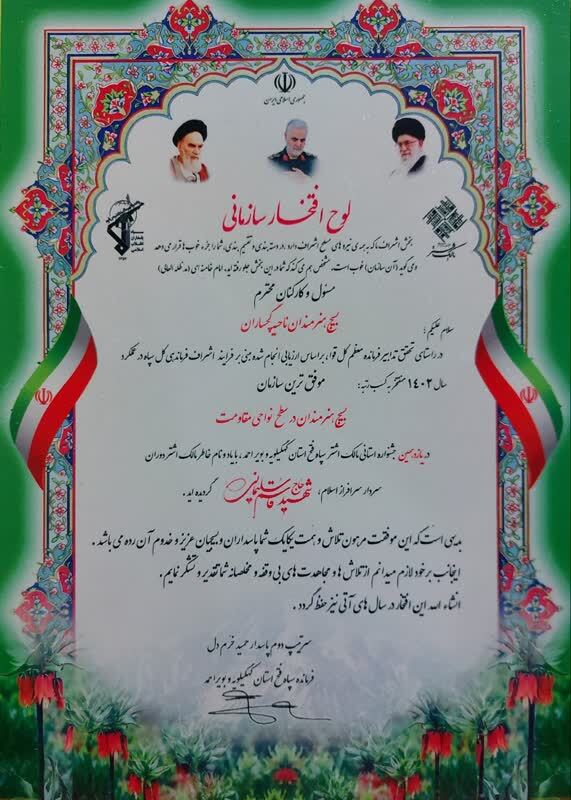 جمهوری اسلامی ایران
لوح افتخار سازمانی
بخش اشراف ما که به همه‌ی نیروهای مسلح اشراف دارد، در دسته بندی و تقسیم بندی، شما را جزء خوب‌ها قرار می دهد
و می گوید (آن سازمان) خوب است، مشخص می کند که شما در این بخش جلو رفته اید. امام خامنه ای (مد ظله العالی)
مسئول و کارکنان محترم
بسیج هنرمندان ناحیه گچساران
سلام علیکم؛
در راستای تحقق تدابیر فرمانده معظم کل قوا، بر اساس ارزیابی انجام شده مبنی بر فرایند اشراف فرماندهی کل سپاه در عملکرد
سال ۱۴۰۲ مفتخر به کسب رتبه: موفق ترین سازمان
بسیج هنرمندان در سطح نواحی مقاومت
در یازدهمین جشنواره استانی مالک اشتر سپاه فتح استان کهگیلویه و بویراحمد، با یاد و نام خاطر مالک اشتر دوران
سردار سرافراز اسلام، شهید حاج قاسم سلیمانی گردیده اید.
بدیهی است که این موفقیت مرهون تلاش و همت یکایک شما پاسداران و بسیجیان عزیز و خدوم آن رده می باشد.
اینجانب بر خود لازم میدانم از تلاش ها و مجاهدت های بی وقفه و مخلصانه شما تقدیر و تشکر نمایم.
انشاء الله این افتخار در سال های آتی نیز حفظ گردد.
سرتیپ دوم پاسدار حمید خرم دل
فرمانده سپاه فتح استان کهگیلویه و بویراحمد